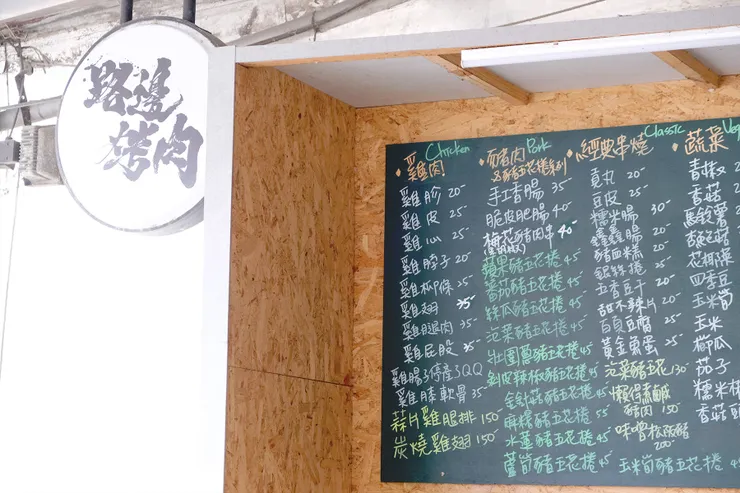 路邊
烤肉
Chicken
雞肉
雞胗 20-
雞皮 25-
雞心 25-
雞脖子 20-
雞柳條 25-
雞翅 35-
雞腿肉 35-
雞屁股 35
雞腸子停產QQ
雞膝軟骨 35
蒜片雞腿排 150-
炭燒雞翅 150-
Pork
豬肉
&豬五花捲系列
手工香腸 35-
脆皮肥腸 40-
梅花豬肉串 40-
蘋果豬五花捲 45
番茄豬五花捲 45
絲瓜豬五花捲 45
泡菜豬五花捲 45
壯圍蔥豬五花捲 45
剝皮辣椒豬五花捲 45
金針菇豬五花捲 45
麻糬豬五花捲 45
水蓮豬五花捲 45
蘆筍豬五花捲 45
Classic
經典串燒
貢丸 20-
豆皮 25-
糯米腸 30-
鑫鑫腸 20-
豬血糕 20-
銀絲捲 25-
五香豆干 20-
甜不辣片 20-
百頁豆腐 25-
黃金魚蛋 25-
泡菜豬五花 130-
鹹豬肉 150-
味噌松阪豬
200-
玉米筍豬五花捲 45
蔬菜
青椒
香菇
馬鈴薯
花椰菜
四季豆
玉米筍
玉米
櫛瓜
茄子
糯米椒
香菇